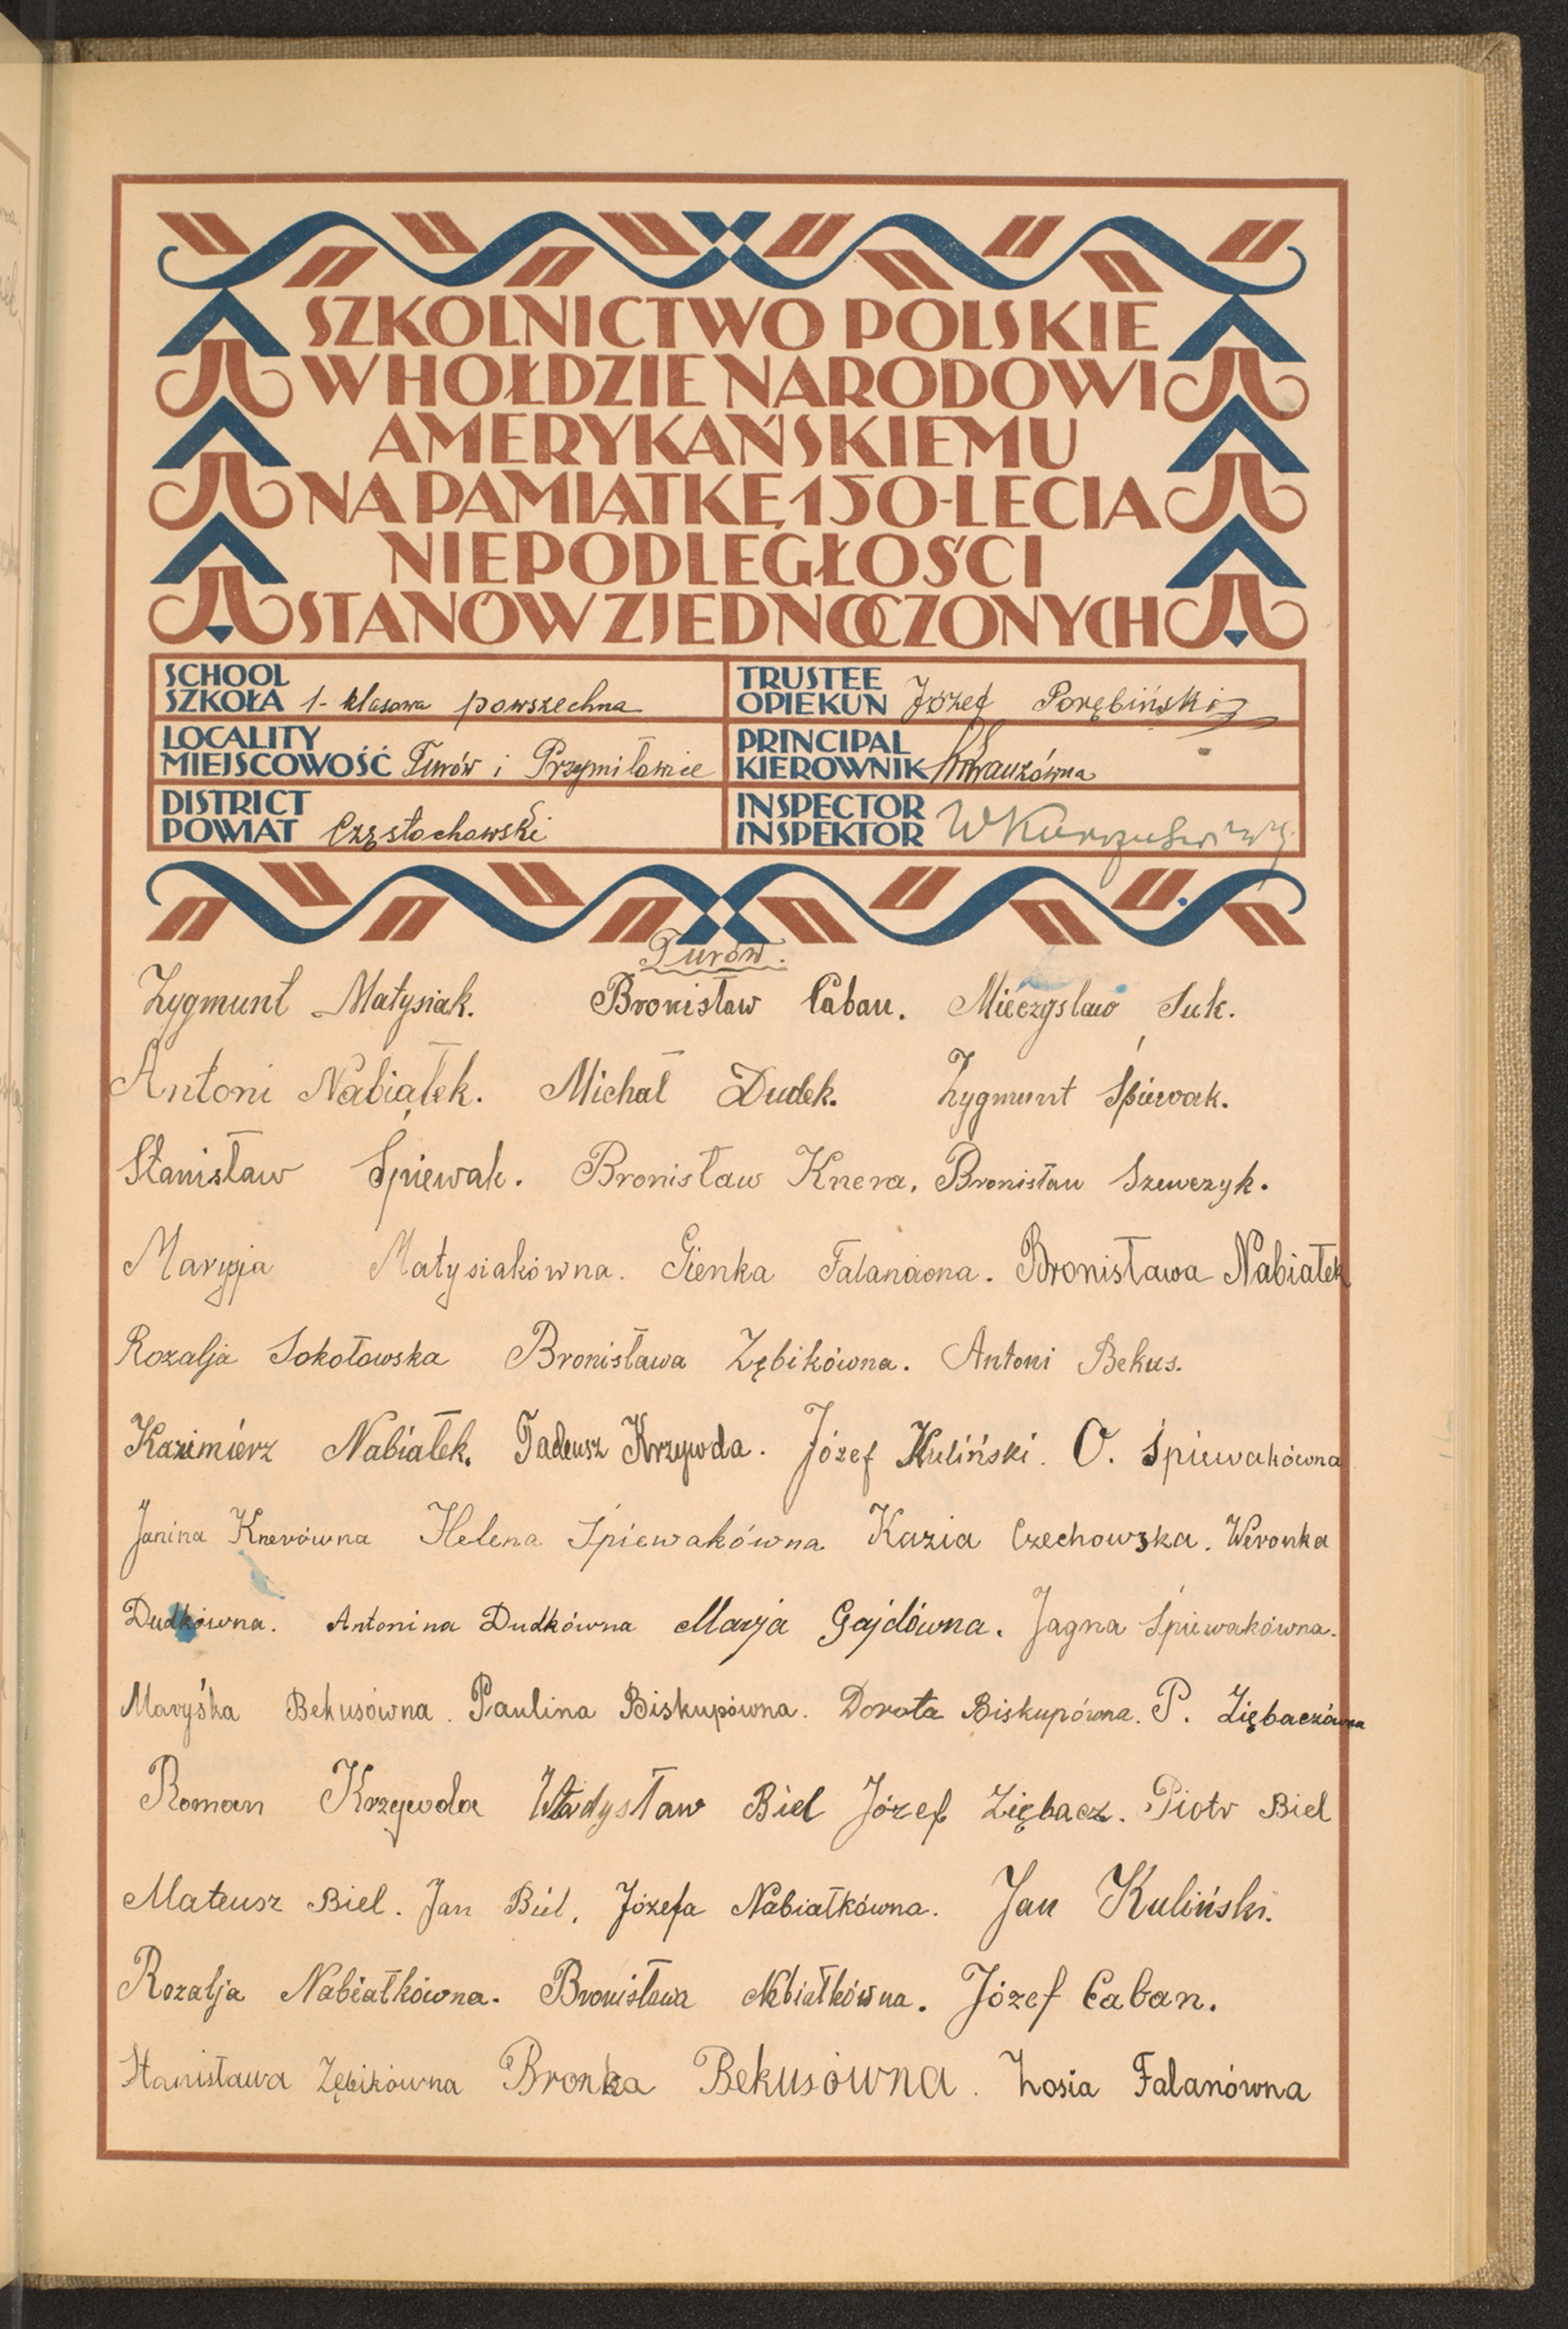 SZKOLNICTWO POLSKIE
W HOŁDZIE NARODOWI
AMERYKAŃSKIEMU
NA PAMIĄTKĘ 150-LECIA
NIEPODLEGŁOŚCI
STANÓW ZJEDNOCZONYCH
SCHOOL
SZKOŁA 1-klasowa powszechna
TRUSTEE
OPIEKUN Józef Porębiński
LOCALITY
MIEJSCOWOŚĆ Turów i Przymiłowice
PRINCIPAL
KIEROWNIK
DISTRICT
POWIAT Częstochowski
INSPECTOR
INSPEKTOR
Turów.
Zygmunt Matysiak. Bronisław Caban. Mieczyslaw Suk.
Antoni Nabiąłek. Michał Dudek. Zygmunt Śpiewak.
Stanisław Śpiewak. Bronisław Knera. Bronisław Szewczyk.
Maryja Matysiakówna. Gienka Bronisława Nabiałek
Rozalja Sokołowska Bronisława Zębikówna. Antoni Bekus.
Kazimiérz Nabiałek. Tadeusz Krzywda. Józef Kuliński. O. Śpiewakówna
Janina Knerówna Helena Śpiewakówna Kazia Czechowska. Weronka
Dudkówna. Antonina Dudkówna Marja Gajdówna. Jagna Śpiewakówna.
Maryśka Bekusówna. Paulina Biskupówna. Dorota Biskupówna. P. Ziębaczówna
Roman Krzywda Władysław Biel Józef Ziębacz. Piotr Biel
Mateusz Biel. Jan Biel. Józefa Nabiałkówna. Jan Kuliński.
Rozalja Nabiałkówna. Bronisława Nabiałkówna. Józef Caban.
Stanisława Zębikówna Bronka Bekusówna. Zosia Falanówna